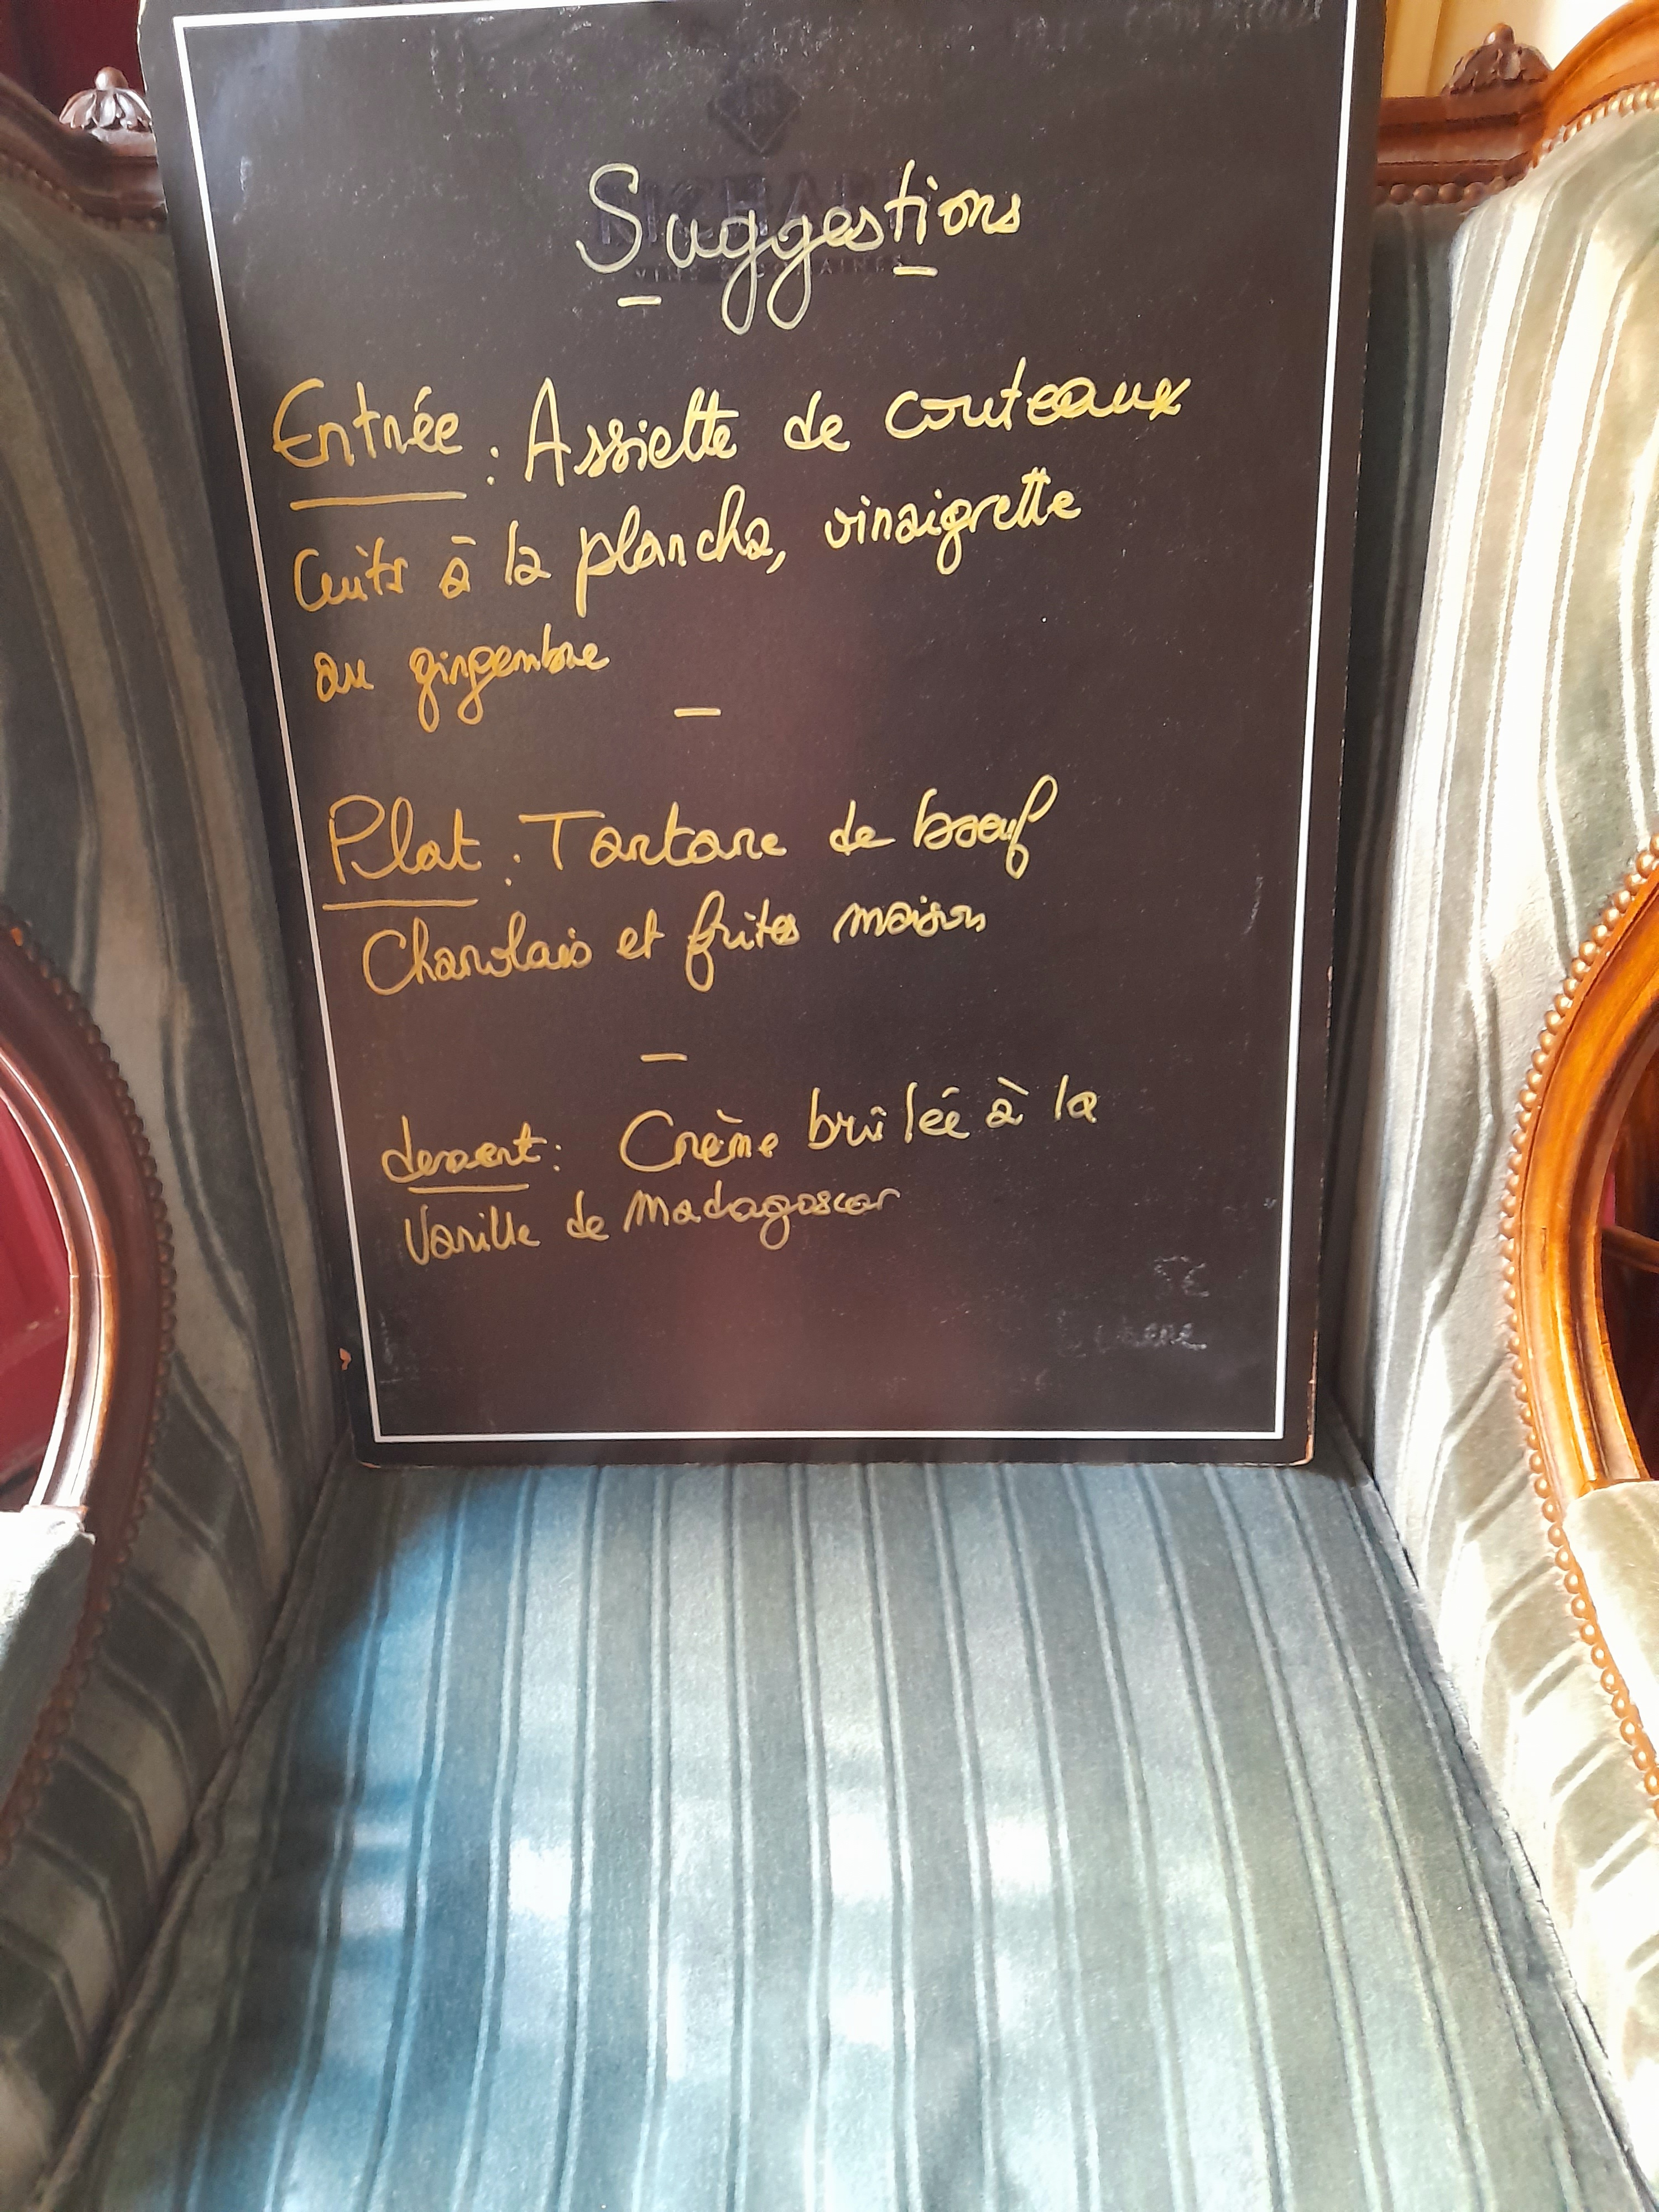 Suggestions
Entrée : Assiette de couteaux
Cuits à la plancha, vinaigrette
au gingembre
Plat : Tartare de boeuf
Charolais et frites maison
dessert : Crème brûlée à la
Vanille de Madagascar